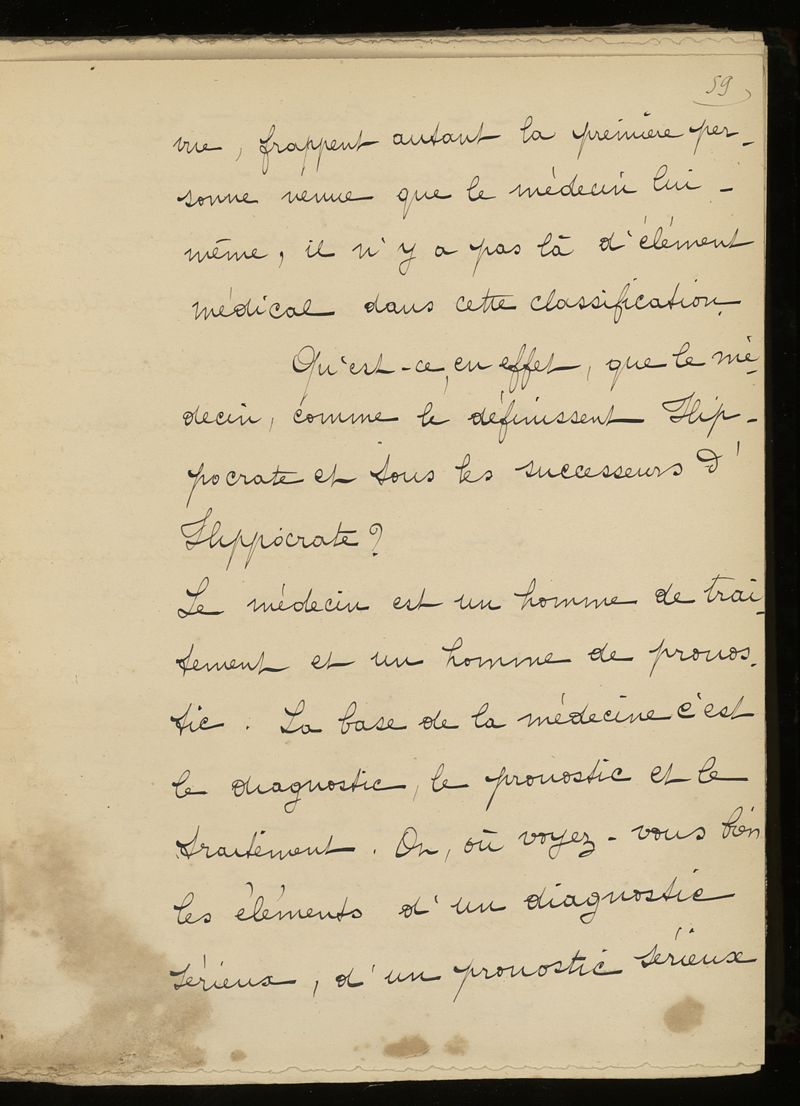 59
vue, frappent autant la première per-
sonne venue que le médecin lui-
même, il n'y a pas là d'élément
médical dans cette classification.
Qu'est-ce, en effet, que le mé-
decin, comme le définissent Hip-
pocrate et tous les successeurs d'
Hippocrate?
Le médecin est un homme de trai-
tement et un homme de pronos-
tic. La base de la médecine c'est
le diagnostic, le pronostic et le
traitement. Or, où voyez-vous bien
les éléments d'un diagnostic
sérieux, d'un pronostic sérieux